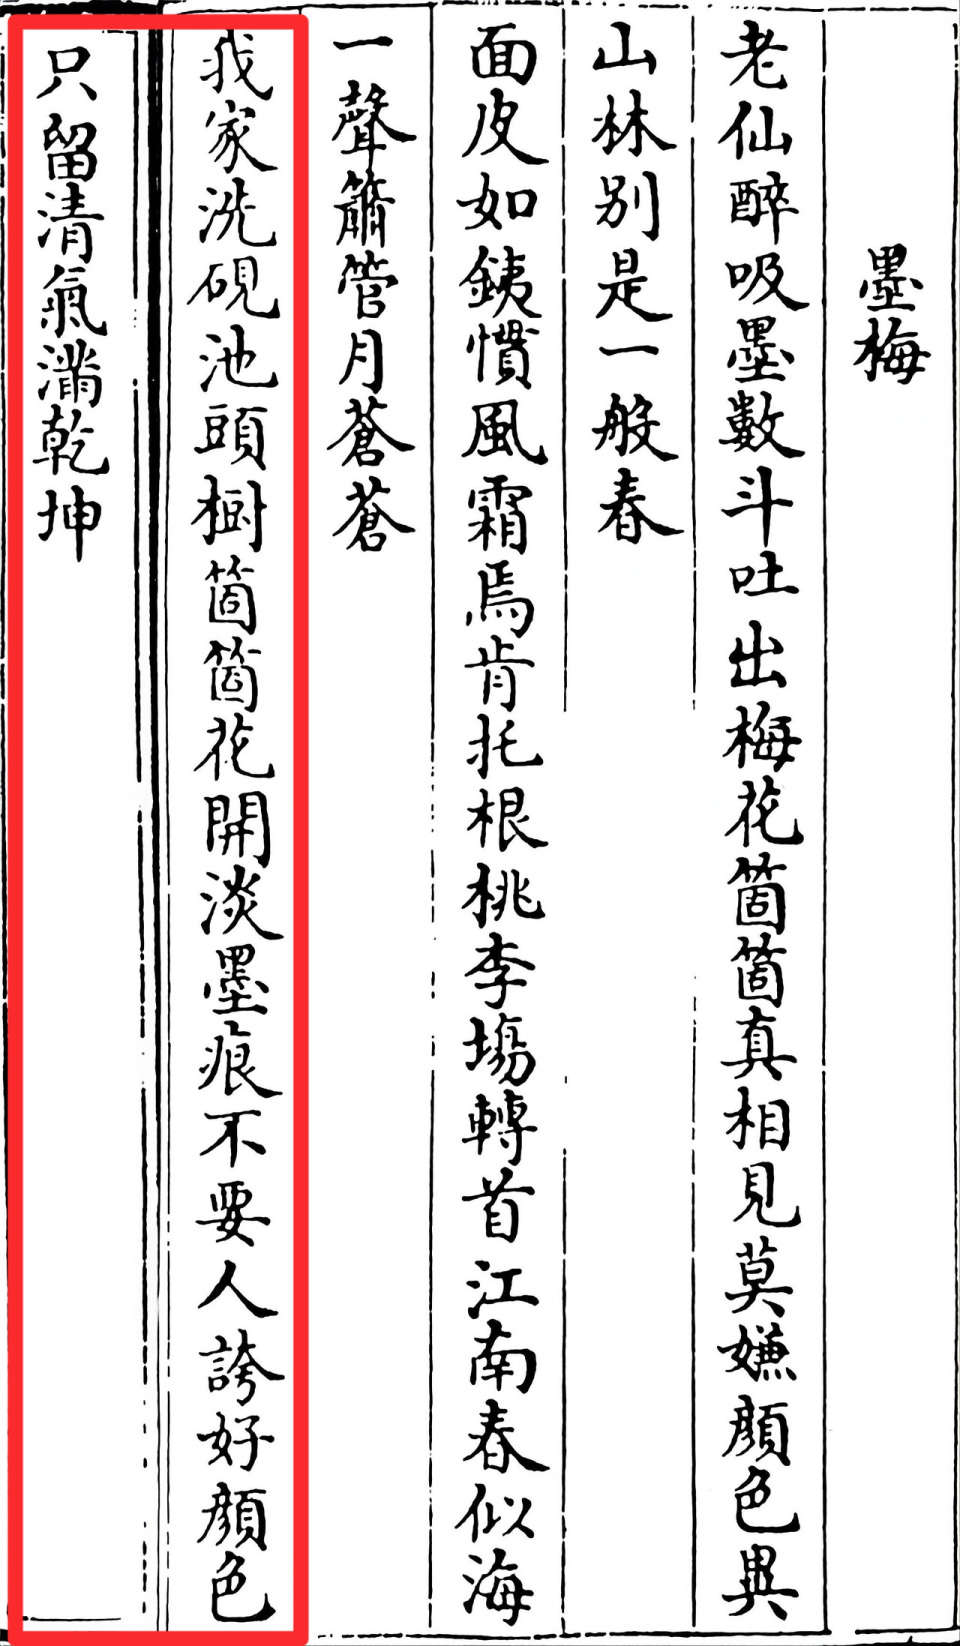 墨梅
老仙醉吸墨數斗吐出梅花箇箇真相見莫嫌顔色異
山林别是一般春
面皮如銕慣風霜焉肯托根桃李塲轉首江南春似海
一聲簫管月蒼蒼
我家洗硯池頭樹箇箇花開淡墨痕不要人誇好顔色
只留清氣滿乾坤